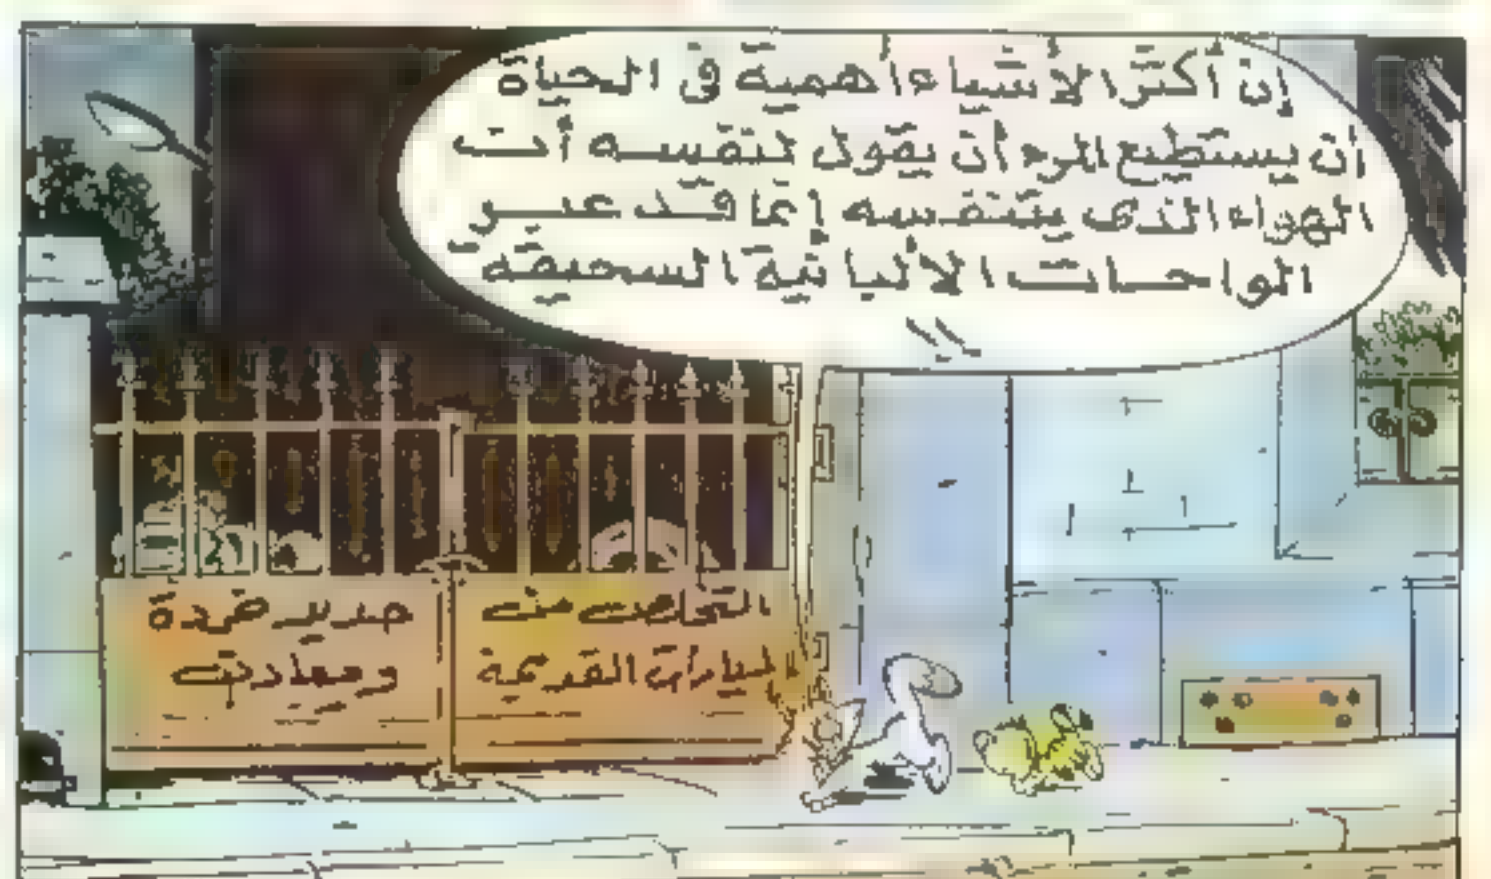 إن أكثر الأشياء أهمية في الحياة
أن يستطيع المرء أن يقول لنفسه أن
الهواء الذى يتنفسه إنما قد عبر
الواحات الألبانية السحيقة
!!
التخلص من
السيارات القديمة
حديد خردة
ومعادن